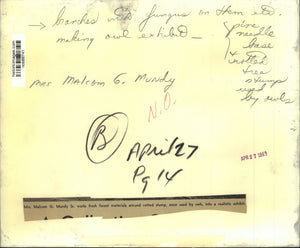 branches with fungus on them etc.
making owl exhibit —
pine
needle
base
& rotted
tree
stump
used
by owls
Mrs Malcom G. Mundy
N.O.
B
April 27
Pg 14
APR 27 1969
Mrs. Malcom G. Mundy Jr. works fresh forest materials around rotted stump, once used by owls, into a realistic exhibit.